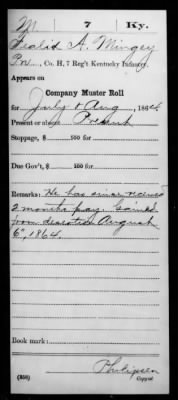 M. 7 Ky.
Fealid A. Mingey
Pvt., Co. H, 7 Reg't Kentucky Infantry.
Appears on
Company Muster Roll
for July & Aug, 1864.
Present or absent Present
Stoppage, $ 100 for
Due Gov't, $ 100 for
Remarks: He has since received
2 months pay. Gained
from desertion August
6", 1864.
Book mark:
Philipsen
(358) Copyist.